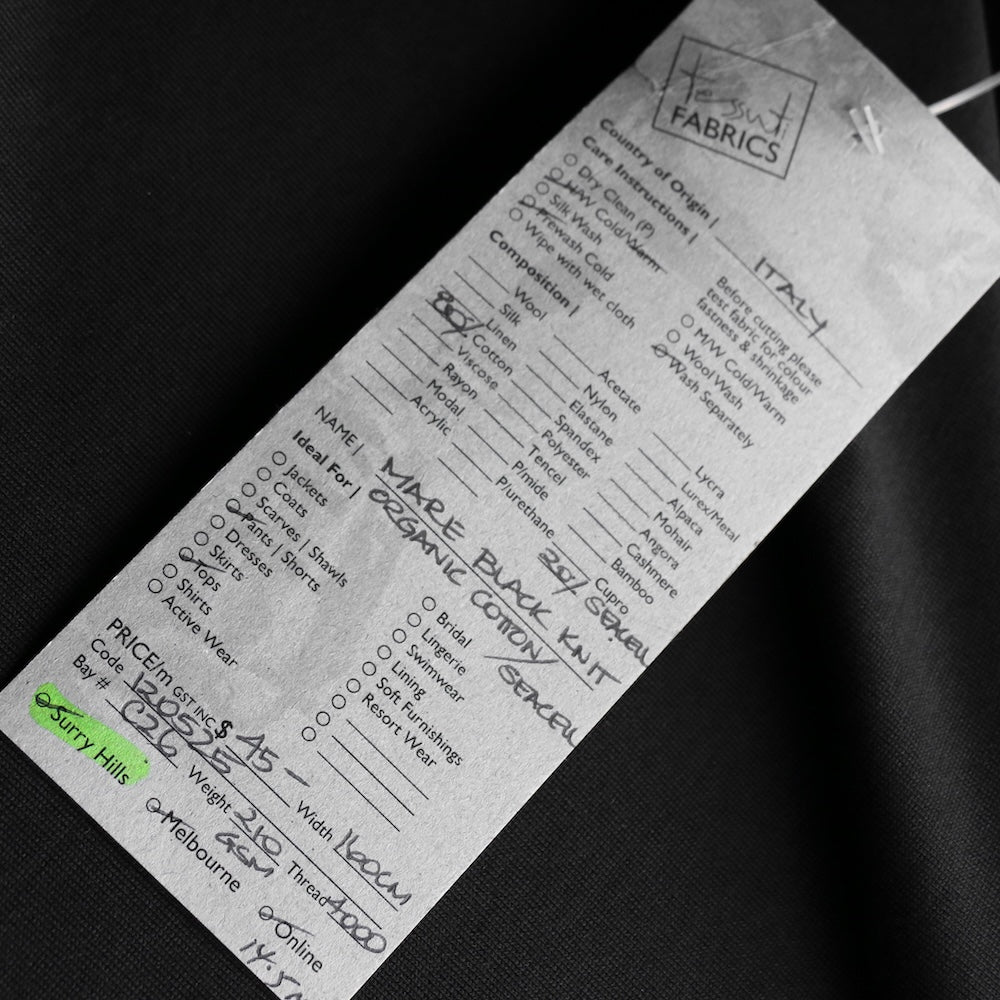 tessuti
FABRICS
Country of Origin | ITALY
Care Instructions |
Dry Clean (P)
H/W Cold/Warm
Silk Wash
Prewash Cold
Wipe with wet cloth
Before cutting please
test fabric for colour
fastness & shrinkage
M/W Cold/Warm
Wool Wash
Wash Separately
Composition |
Wool
Silk
Linen
80% Cotton
Viscose
Rayon
Modal
Acrylic
Acetate
Nylon
Elastane
Spandex
Polyester
Tencel
P/mide
P/urethane
Lycra
Lurex/Metal
Alpaca
Mohair
Angora
Cashmere
Bamboo
Cupro
20% SEACELL
NAME | MARE BLACK KNIT
ORGANIC COTTON/
SEACELL
Ideal For |
Jackets
Coats
Scarves | Shawls
Pants | Shorts
Dresses
Skirts
Tops
Shirts
Active Wear
Bridal
Lingerie
Swimwear
Lining
Soft Furnishings
Resort Wear
PRICE/m GST INC $ 45 -
Code 120525 Width 160CM
Bay # C26 Weight 210 GSM Thread 4000
Surry Hills
Melbourne
Online